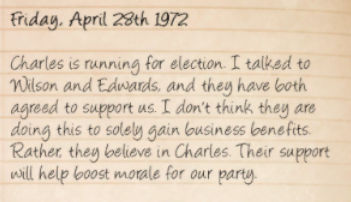 Friday, April 28th 1972
Charles is running for election. I talked to
Wilson and Edwards, and they have both
agreed to support us. I don't think they are
doing this to solely gain business benefits.
Rather, they believe in Charles. Their support
will help boost morale for our party.